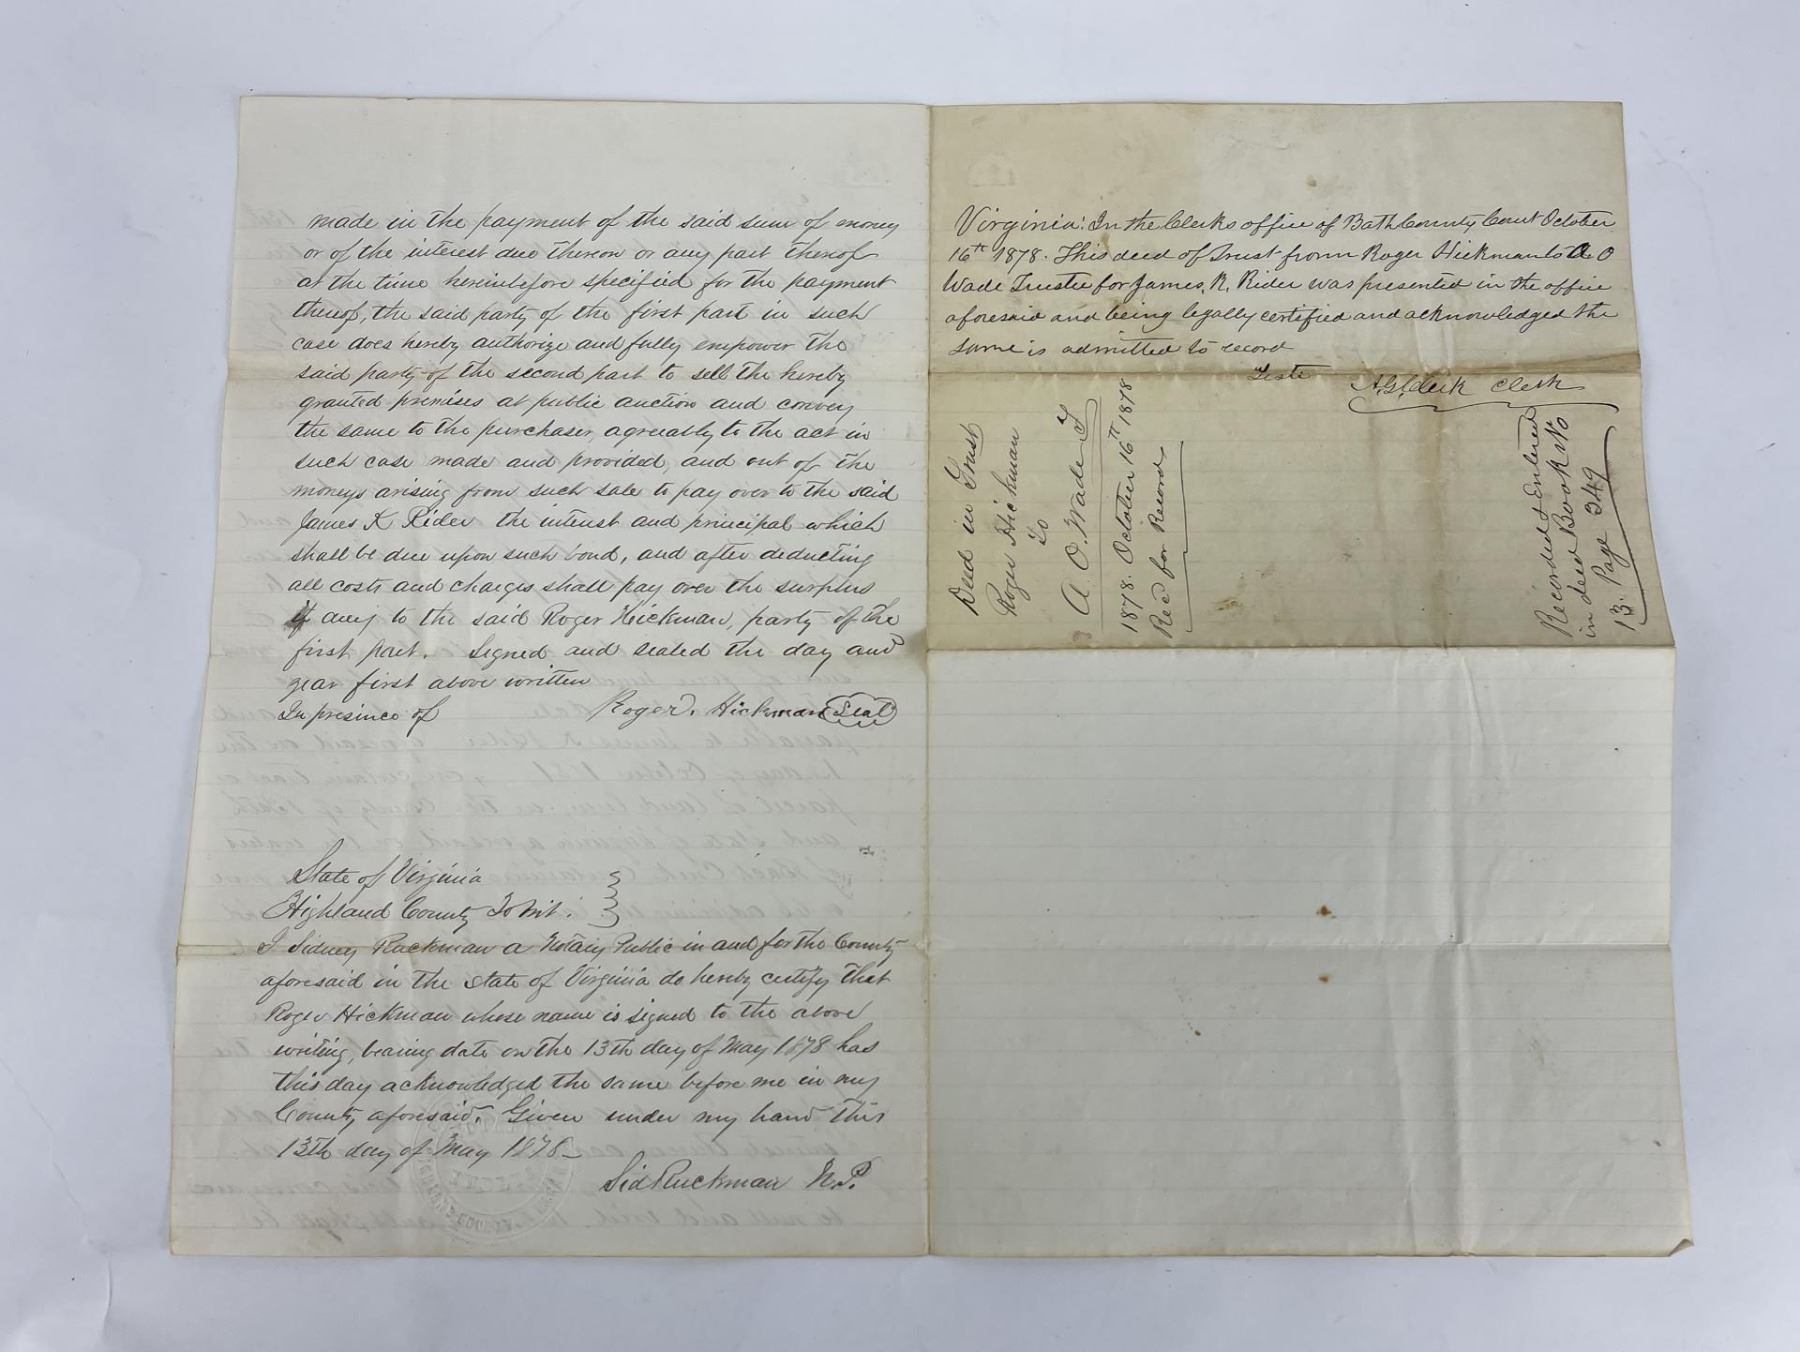 made in the payment of the said sum of money
or of the interest due thereon or any part thereof
at the time hereinbefore specified for the payment
thereof, the said party of the first part in such
case does hereby authorize and fully empower the
said party of the second part to sell the hereby
granted premises at public auction and convey
the same to the purchaser agreeably to the act in
such case made and provided, and out of the
moneys arising from such sale to pay over to the said
James K Rider the interest and principal which
shall be due upon such bond, and after deducting
all costs and charges shall pay over the surplus
if any to the said Roger Hickman, party of the
first part. Signed and sealed the day and
year first above written
In presence of Roger. Hickman Seal
State of Virginia
Highland County To Wit:
I Sidney Ruckman a Notary Public in and for the County
aforesaid in the state of Virginia do hereby certify that
Roger Hickman whose name is signed to the above
writing, bearing date on the 13th day of May 1878 has
this day acknowledged the same before me in my
County aforesaid. Given under my hand this
13th day of May 1878
Sid Ruckman N.P.
Virginia: In the Clerks office of Bath County Court October
16th 1878. This deed of Trust from Roger Hickman to A. O
Wade Trustee for James. R. Rider was presented in the office
aforesaid and being legally certified and acknowledged the
same is admitted to record
Teste Clerk
Deed in Trust
Roger Hickman
To
A. O. Wade T
1878. October 16th 1878
Rec'd for Record
Recorded & Entered
in deed Book No
13. Page 349